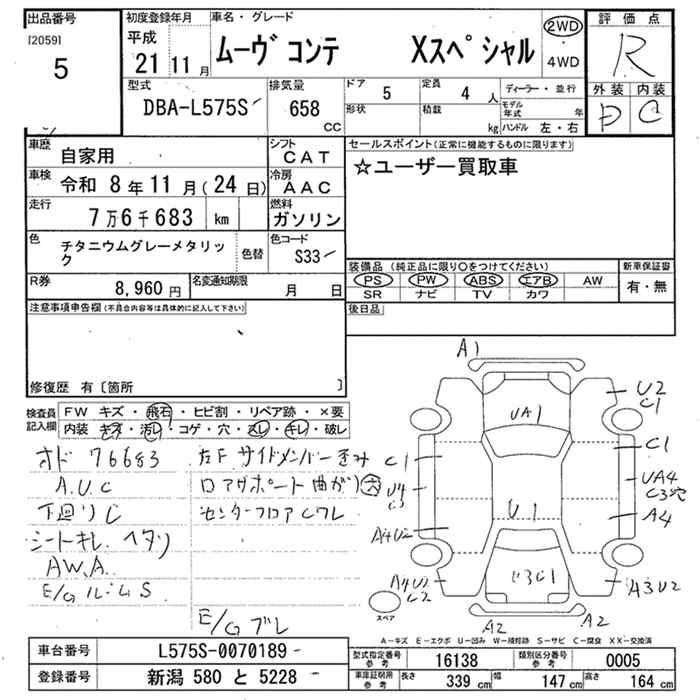 出品番号 初度登録年月 車名・グレード 評価点
[2059] 平成 ムーヴ コンテ Xスペシャル 2WD R
5 21 11月 ・4WD
型式 排気量 ドア 5 定員 4 人 ディーラー・並行 外装 内装
DBA-L575S 658 CC 形状 積載 kg モデル年式 年 D C
ハンドル 左・右
車歴 自家用 シフト CAT セールスポイント(正常に機能するものに限ります)
車検 令和 8年 11月(24日) 冷房 AAC ☆ユーザー買取車
走行 7万6千683 km 燃料 ガソリン
色 チタニウムグレーメタリック 色替 色コード S33
R券 8,960円 名変通知期限 月 日
装備品 (純正品に限り○をつけてください) 新車保証書
PS PW ABS エアB AW 有・無
SR ナビ TV カワ
注意事項申告欄(不具合内容等は具体的に記入して下さい) 後日品
修復歴 有〔箇所 〕
検査員記入欄 FW キズ・飛石・ヒビ割・リペア跡・×要
内装 キズ・汚レ・コゲ・穴・スレ・キレ・破レ
オド 76683 左F サイドメンバー歪み
A.U.C ロアサポート曲がり 大
下廻りC センターフロアCワレ
シートキレ、ヘタリ
AW.A
E/Gルーム S
E/G ブレ
A1
U2
C1
UA1
C1
C1
U4
UA4
C3穴
U1
A4
A4U2
A4U2
C2
U3C1
A3U2
スペア
A2
A2
A-キズ E-エクボ U-凹み W-補修跡 S-サビ C-腐食 XX-交換済
車台番号 L575S-0070189 型式指定番号 参考 16138 類別区分番号 参考 0005
登録番号 新潟 580 と 5228 車庫証明用 参考 長さ 339 cm 幅 147 cm 高さ 164 cm